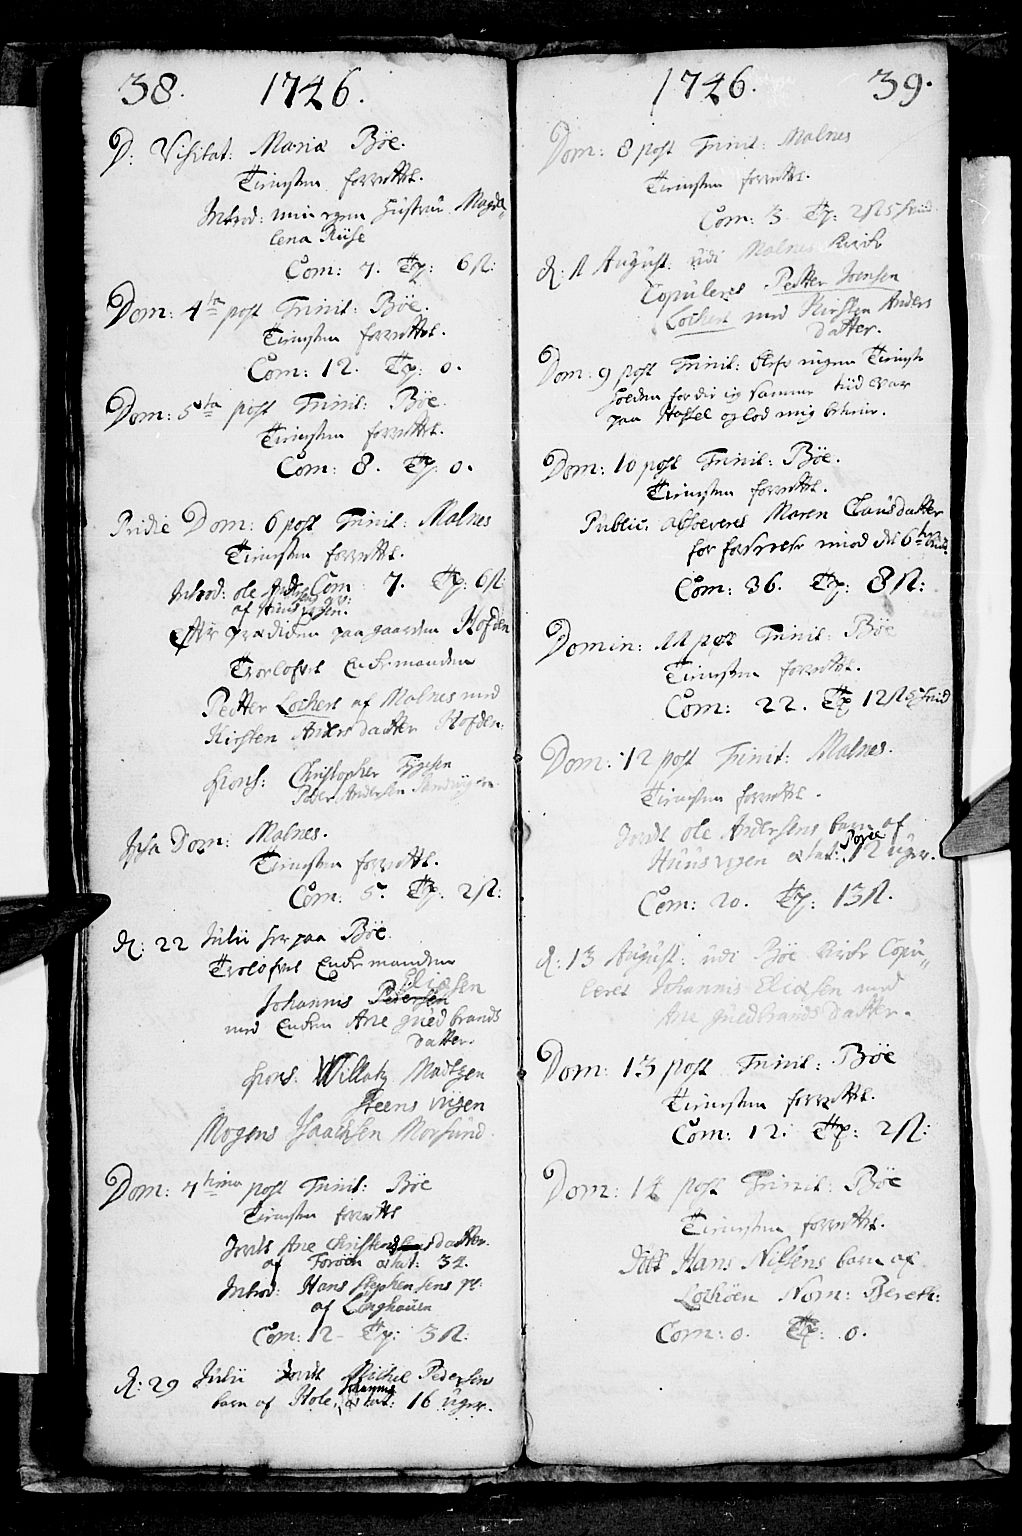 38. 1746.
D: Visitat: Mariæ Bøe.
Tienesten forrettet.
Introd: min egen Hustrue Magda„
lena Riise
Com: 7. Tp: 6 ß:
Dom: 4ta post Trinit: Bøe.
Tienesten forrettet.
Com: 12. Tp: 0.
Dom: 5ta post Trinit: Bøe.
Tienesten forrettet.
Com: 8. Tp: 0.
Pridie Dom: 6 post Trinit: Malnes
Tienesten forrettet.
Introd: ole Com 7. Tp: 6 ß:
af
Efter prædicken paa gaarden Hofden
Trolofvet Enckemanden
Petter Lochert af Malnes med
Kirsten Anders datter Hofden.
spons: Christopher
Peder Andersen
Ipsa Dom: Malnes.
Tienesten forrettet.
Com: 5. Tp: 2 ß:
d: 22 Julii her paa Bøe
Trolofvet Enckemanden
Eliæsen
Johannis Pedersen
med Encken Ane guedbrands
datter.
spons: Willatz Madtzen
Steens
Mogens Isaachsen Morsund.
Dom: 7tima post Trinit: Bøe
Tienesten forrettet
Jordet Ane Christens datter
af Forøen ætat: 34.
Introd: Hans Stephensens
af Langhauen
Com: 12 Tp: 3 ß:
d: 29 Julii Jordet Michel Pedersens
barn af Hole, ætat: 16 uger.
1746. 39.
Dom: 8 post Trinit: Malnes
Tienesten forrettet.
Com: 3. Tp: 2 ß 5 hvid.
d: 1 August: udi Malnes Kircke
Copuleres Petter Joensen
Lochert med Kirsten Anders
datter.
Dom: 9 post Trinit: blefv ingen Tieneste
holden fordie ieg samme tiid var
paa Hassel og lod mig
Dom: 10 post Trinit: Bøe.
Tienesten forrettet.
Public: absolveres Maren Clausdatter
for forseelse imod det 6te bud.
Com: 36. Tp: 8 ß:
Domin: 11 post Trinit: Bøe
Tienesten forrettet.
Com: 22. Tp 12 ß 5 hvid
Dom: 12 post Trinit: Malnes.
Tienesten forrettet.
Jordet ole Andersens barn af
Huusvogen ætat: 12 uger.
Com: 20. Tp: 13 ß.
d: 13 August: udi Bøe Kircke Copu„
leret Johannis Eliæsen med
Ane guedbrands datter.
Dom: 13 post Trinit: Bøe
Tienesten forrettet.
Com: 12. Tp: 2 ß:
Dom: 14 post Trinit: Bøe
Tienesten forrettet.
Døbt Hans Nilsens barn af
Lochøen Nom: Bereth:
Com: 0. Tp: 0.